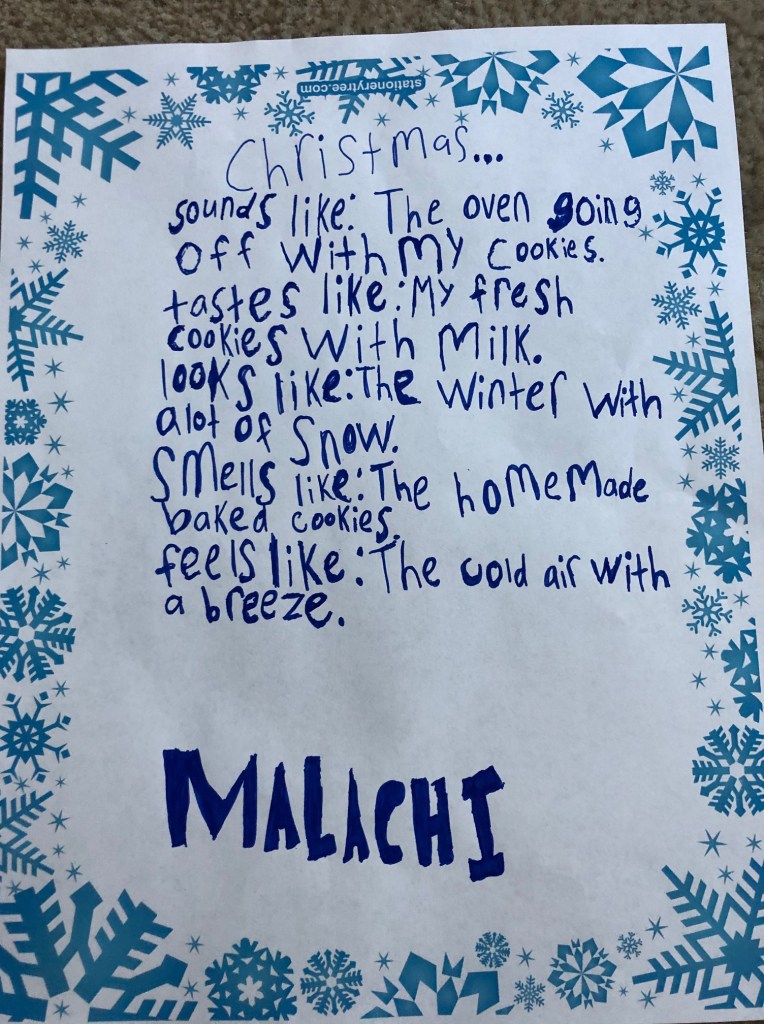 stationerytree.com
Christmas...
sounds like: The oven going
off with my cookies.
tastes like: My fresh
cookies with Milk.
looks like: The winter with
alot of snow.
Smells like: The homemade
baked cookies.
feels like: The cold air with
a breeze.
MALACHI